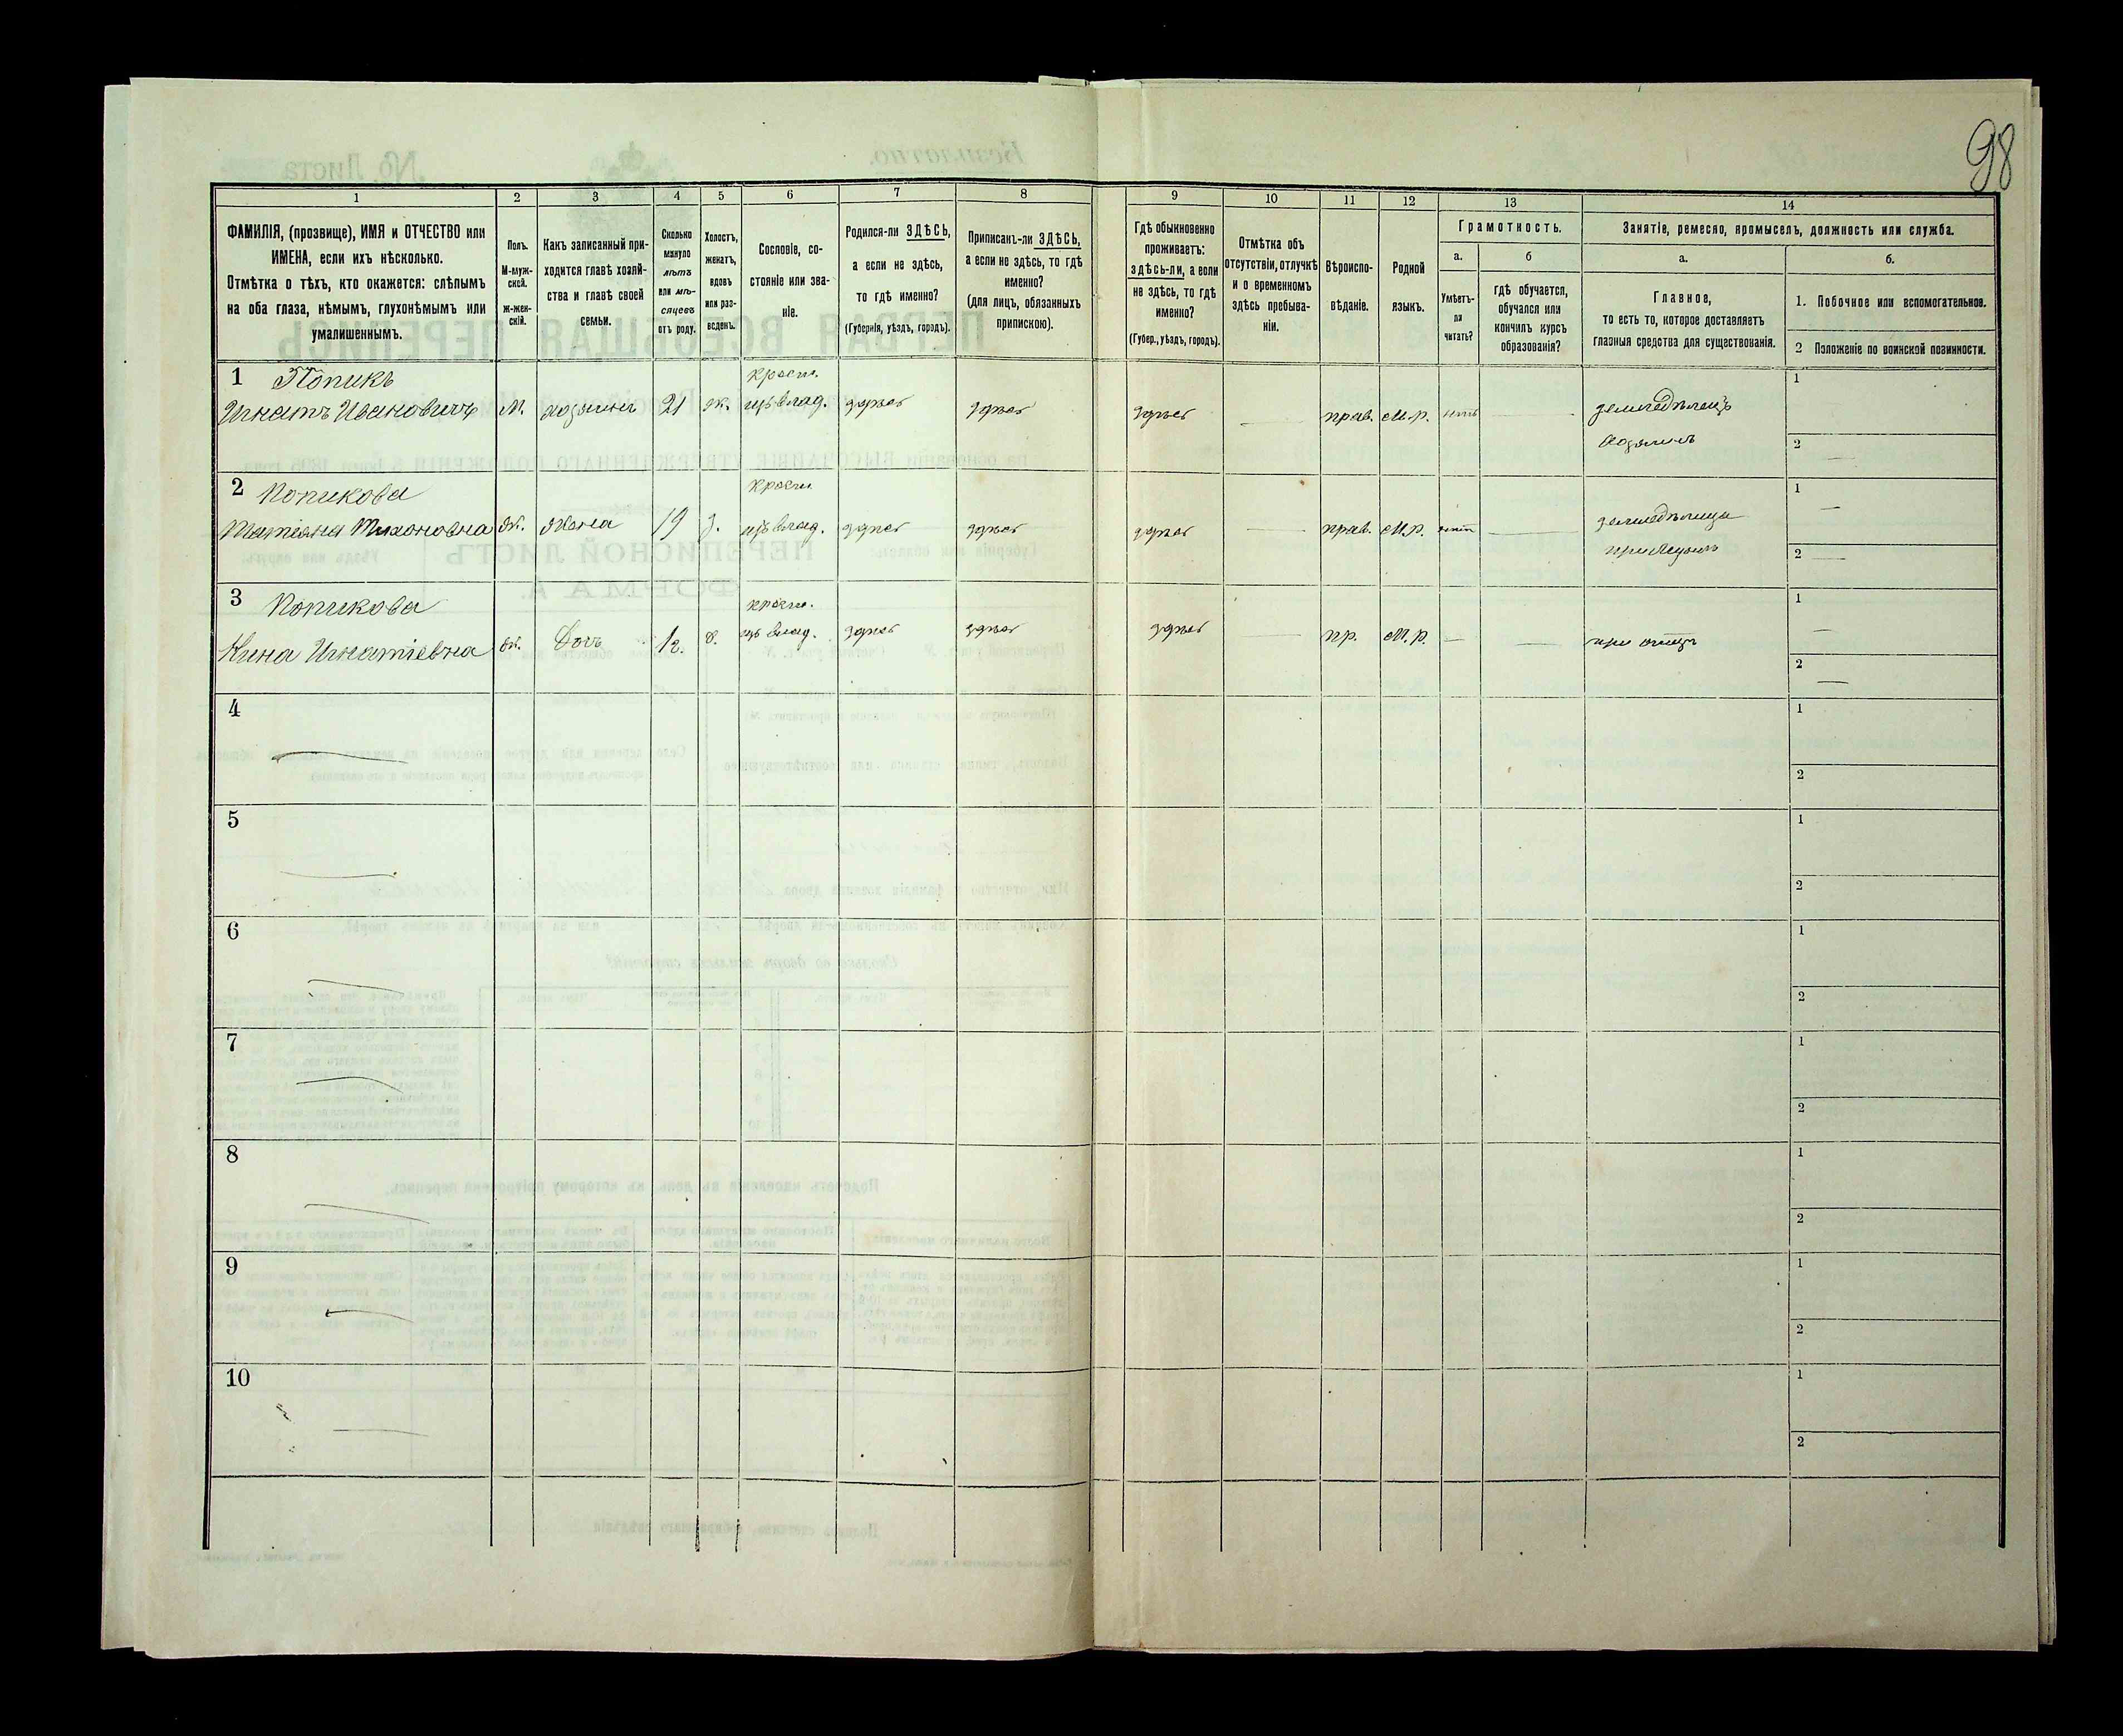 98
1
2
3
4
5
6
7
8
9
10
11
12
13
14
ФАМИЛІЯ, (прозвище), ИМЯ и ОТЧЕСТВО или
ИМЕНА, если ихъ нѣсколько.
Отмѣтка о тѣхъ, кто окажется: слѣпымъ
на оба глаза, нѣмымъ, глухонѣмымъ или
умалишеннымъ.
Полъ.
М-муж-
ской.
Ж-жен-
скій.
Какъ записанный при-
ходится главѣ хозяй-
ства и главѣ своей
семьи.
Сколько
минуло
лѣтъ
или мѣ-
сяцевъ
отъ роду.
Холостъ,
женатъ,
вдовъ
или раз-
веденъ.
Сословіе, со-
стояніе или зва-
ніе.
Родился-ли ЗДѢСЬ,
а если не здѣсь,
то гдѣ именно?
(Губернія, уѣздъ, городъ).
Приписанъ-ли ЗДѢСЬ,
а если не здѣсь, то гдѣ
именно?
(для лицъ, обязанныхъ
припискою).
Гдѣ обыкновенно
проживаетъ:
здѣсь-ли, а если
не здѣсь, то гдѣ
именно?
(Губер., уѣздъ, городъ).
Отмѣтка объ
отсутствіи, отлучкѣ
и о временномъ
здѣсь пребыва-
ніи.
Вѣроиспо-
вѣданіе.
Родной
языкъ.
Грамотность.
а.
Умѣетъ-
ли
читать?
б
гдѣ обучается,
обучался или
кончилъ курсъ
образованія?
Занятіе, ремесло, промыселъ, должность или служба.
а.
Главное,
то есть то, которое доставляетъ
главныя средства для существованія.
б.
1. Побочное или вспомогательное.
2 Положеніе по воинской повинности.
1 Попикъ
крест.
1
Игнатъ Ивановичъ М. хозяинъ 21 ж. изъ влад. здѣсь здѣсь здѣсь прав. м.р. нѣтъ земледѣлецъ
хозяинъ
2
2 Попикова
крест.
1
Татіяна Тихоновна ж. жена 19 з. изъ влад. здѣсь здѣсь здѣсь прав. м.р. нѣтъ
при мужѣ
2
3 Попикова
крест.
1
Игнатіевна ж. дочь изъ влад. здѣсь здѣсь здѣсь пр. м.р. при отцѣ
2
4
1
2
5
1
2
6
1
2
7
1
2
8
1
2
9
1
2
10
1
2